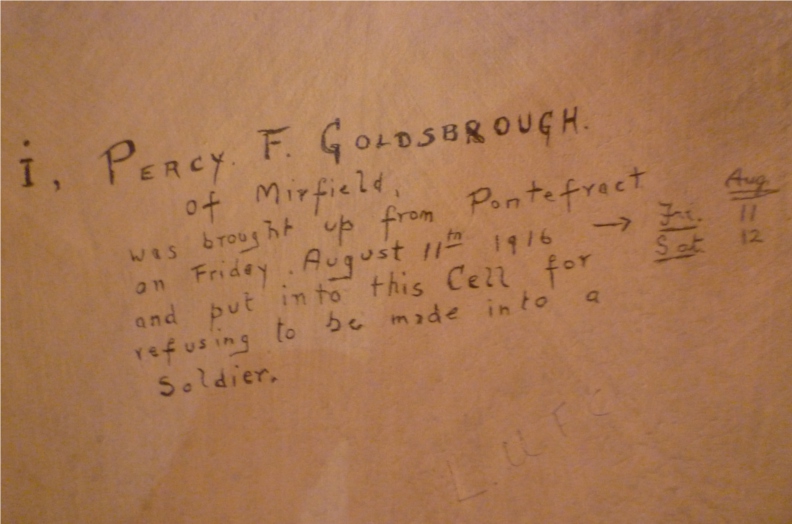 i, PERCY. F. GOLDSBROUGH.
of Mirfield,
was brought up from Pontefract
on Friday. August 11th 1916 →
and put into this Cell for
refusing to be made into a
Soldier.
Aug
Fri. 11
Sat 12